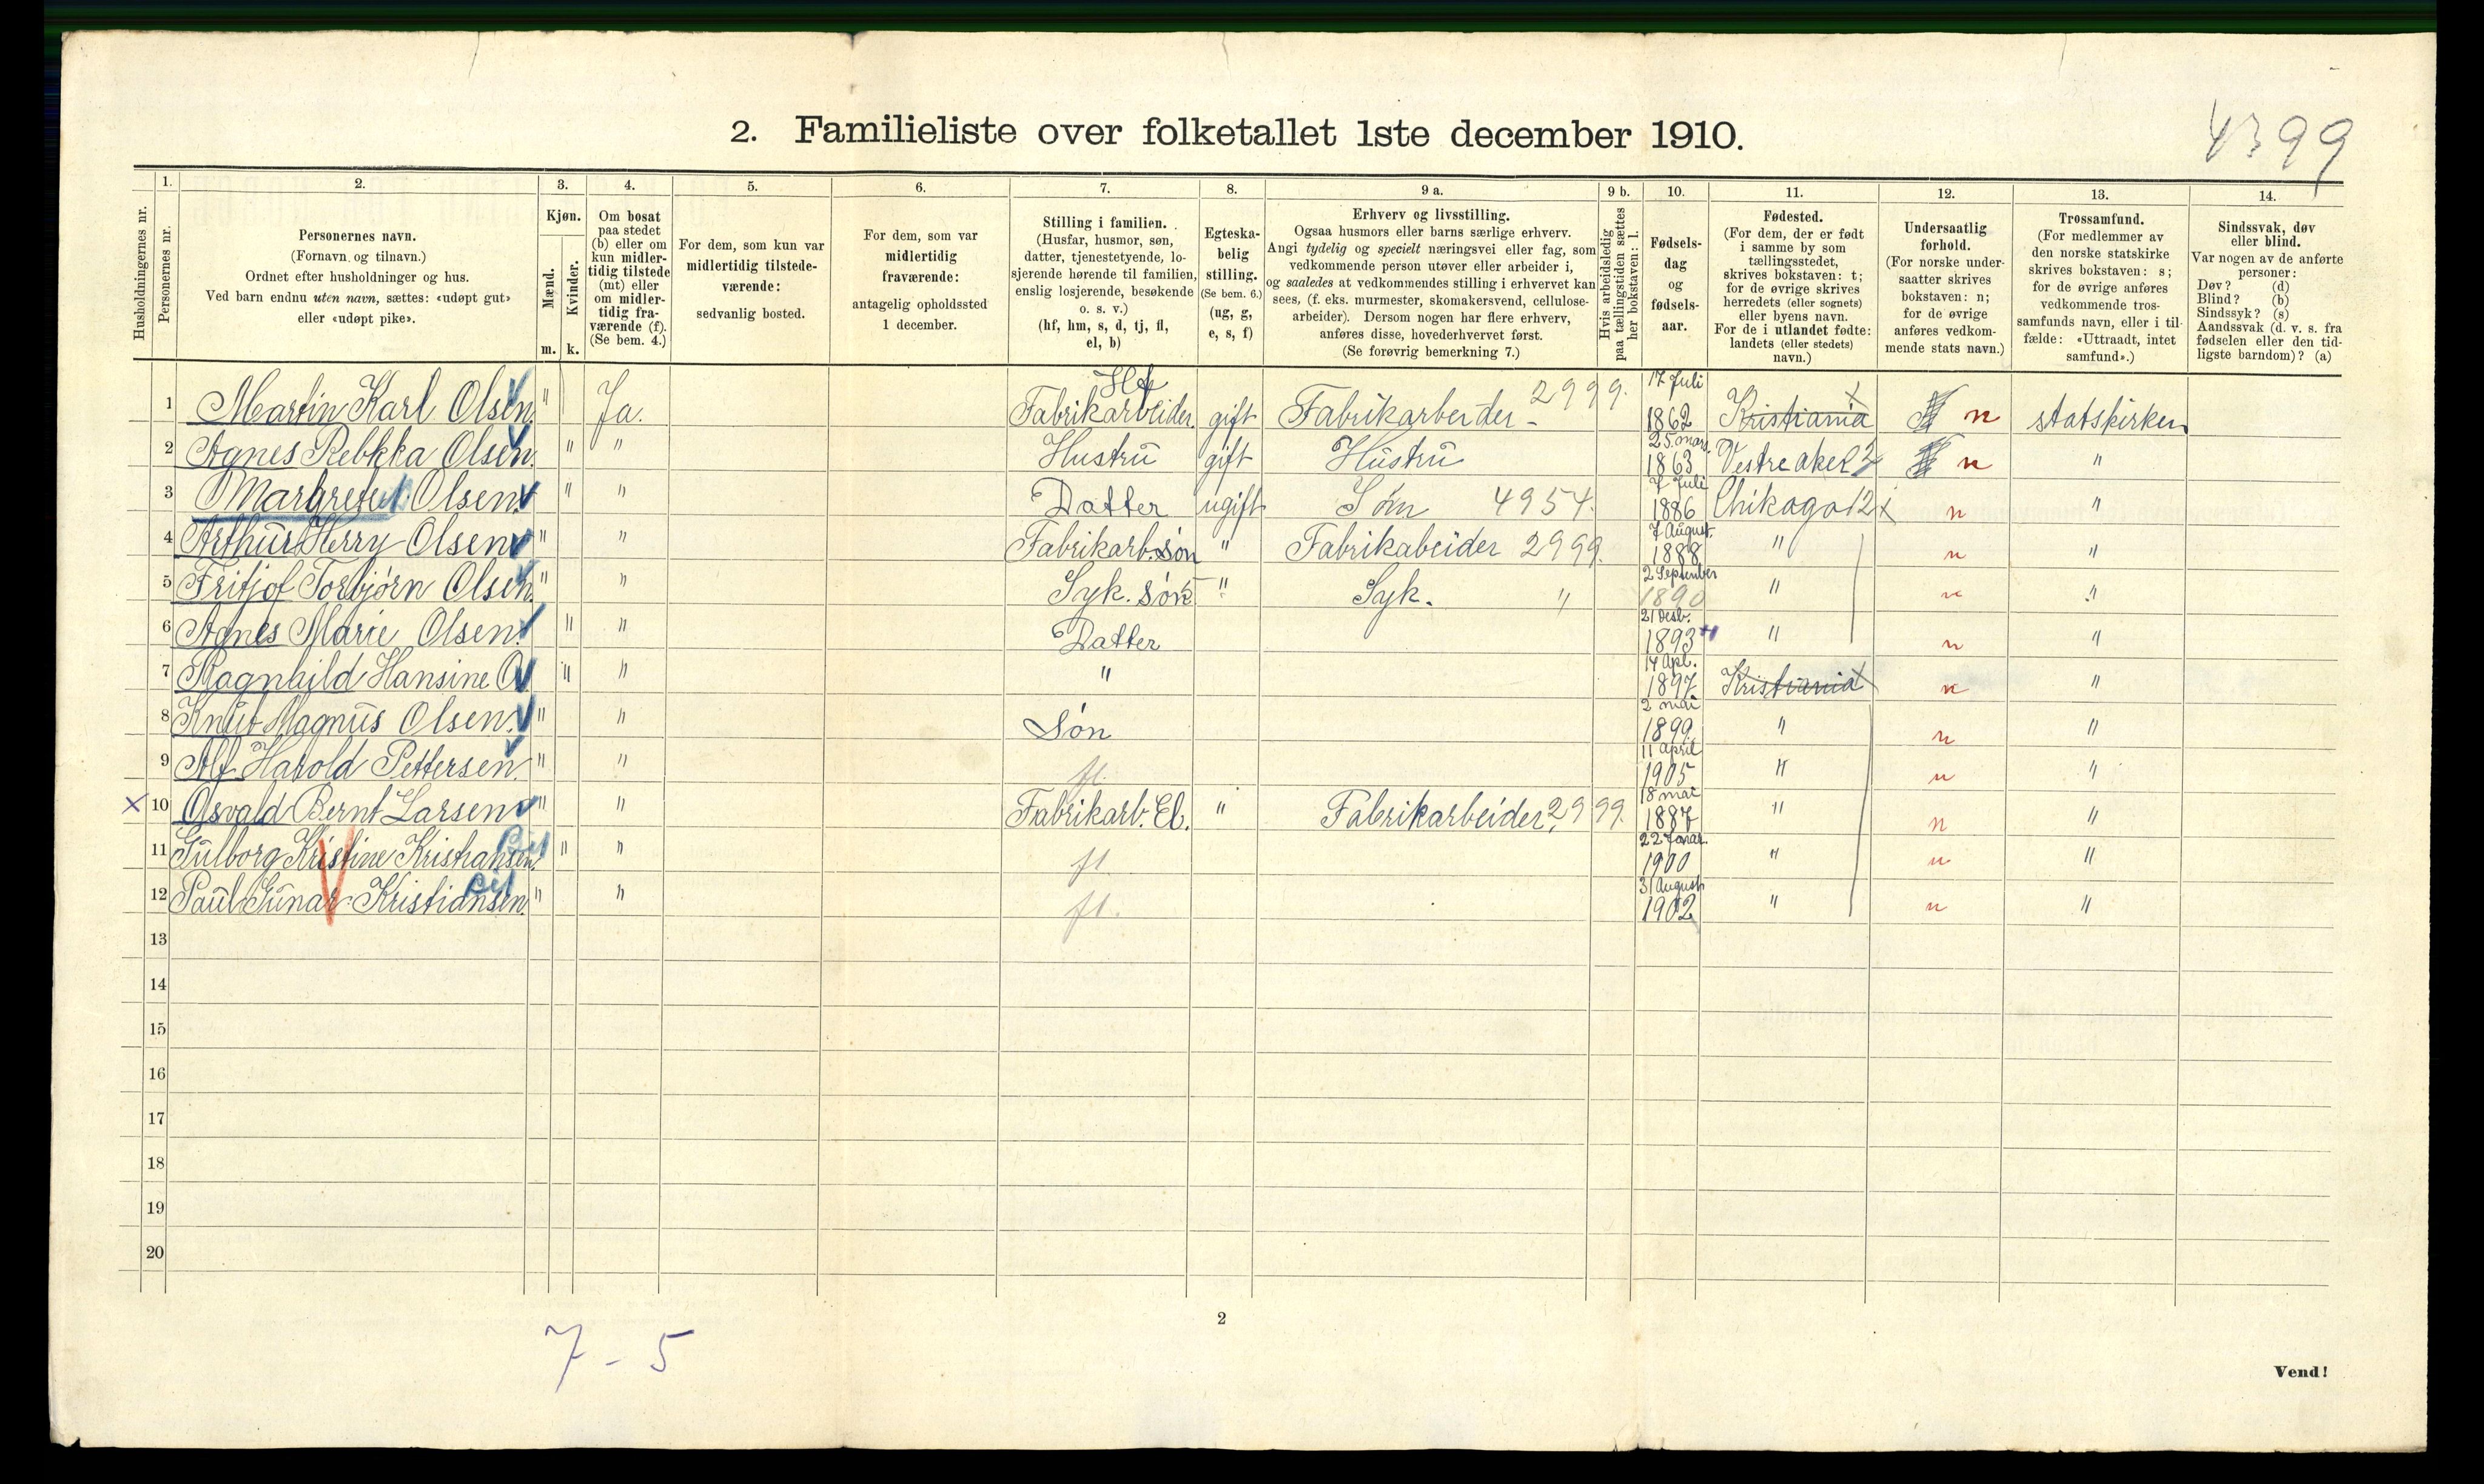 4399
2. Familieliste over folketallet 1ste december 1910.
1. 2. 3. 4. 5. 6. 7. 8. 9 a. 9 b. 10. 11. 12. 13. 14.
Husholdningernes nr.
Personernes nr.
Personernes navn.
(Fornavn og tilnavn.)
Ordnet efter husholdninger og hus.
Ved barn endnu uten navn, sættes: «udøpt gut»
eller «udøpt pike».
Kjøn.
Mænd.
Kvinder.
m. k.
Om bosat
paa stedet
(b) eller om
kun midler-
tidig tilstede
(mt) eller
om midler-
tidig fra-
værende (f).
(Se bem. 4.)
For dem, som kun var
midlertidig tilstede-
værende:
sedvanlig bosted.
For dem, som var
midlertidig
fraværende:
antagelig opholdssted
1 december.
Stilling i familien.
(Husfar, husmor, søn,
datter, tjenestetyende, lo-
sjerende hørende til familien,
enslig losjerende, besøkende
o. s. v.)
(hf, hm, s, d, tj, fl,
el, b)
Egteska-
belig
stilling.
(Se bem. 6.)
(ug, g,
e, s, f)
Erhverv og livsstilling.
Ogsaa husmors eller barns særlige erhverv.
Angi tydelig og specielt næringsvei eller fag, som
vedkommende person utøver eller arbeider i,
og saaledes at vedkommendes stilling i erhvervet kan
sees, (f. eks. murmester, skomakersvend, cellulose-
arbeider). Dersom nogen har flere erhverv,
anføres disse, hovederhvervet først.
(Se forøvrig bemerkning 7.)
Hvis arbeidsledig
paa tællingstiden sættes
her bokstaven: l.
Fødsels-
dag
og
fødsels-
aar.
Fødested.
(For dem, der er født
i samme by som
tællingsstedet,
skrives bokstaven: t;
for de øvrige skrives
herredets (eller sognets)
eller byens navn.
For de i utlandet fødte:
landets (eller stedets)
navn.)
Undersaatlig
forhold.
(For norske under-
saatter skrives
bokstaven: n;
for de øvrige
anføres vedkom-
mende stats navn.)
Trossamfund.
(For medlemmer av
den norske statskirke
skrives bokstaven: s;
for de øvrige anføres
vedkommende tros-
samfunds navn, eller i til-
fælde: «Uttraadt, intet
samfund».)
Sindssvak, døv
eller blind.
Var nogen av de anførte
personer:
Døv? (d)
Blind? (b)
Sindssyk? (s)
Aandssvak (d. v. s. fra
fødselen eller den tid-
ligste barndom)? (a)
Hf 2999. 17 Juli
1 Martin Karl Olsen. " Ja. Fabrikarbeider gift Fabrikarbeider - 1862 Kristiania n statskirken
25 mars
2 Agnes Rebkka Olsen. " " Hustrü gift Hüstrü 1863 Vestre aker 2 n "
7 Juli
3 Margrete Olsen. " " Datter ugift Søm 4954. 1886 Chikago 12 n "
7 August.
4 Arthür Herry Olsen " " Fabrikarb. søn " Fabrikabeider 2999. 1888 " n "
2 September
5 Fritjof Torbjørn Olsen. " " Syk. søn " Syk. " 1890 " n "
21 Desb.
6 Agnes Marie Olsen. " " Datter 1893 " n "
14 Apl.
7 Ragnhild Hansine O " " " 1897 Kristiania n "
2 mai
8 Knut Magnüs Olsen. " " Søn 1899 " n "
11 april
9 Alf Harold Pettersen. " " fl. 1905 " n "
18 mai
X 10 Osvald Bernt Larsen " " Fabrikarb. El. " Fabrikarbeider 2999. 1887 " n "
22 Janar.
11 Gülborg Kristine Kristiansen. " " fl 1900 " n "
31 August
12 Paul Günar Kristiansen. " " fl. 1902 " n "
13
14
15
16
17
18
19
20
2
7 - 5
Vend!